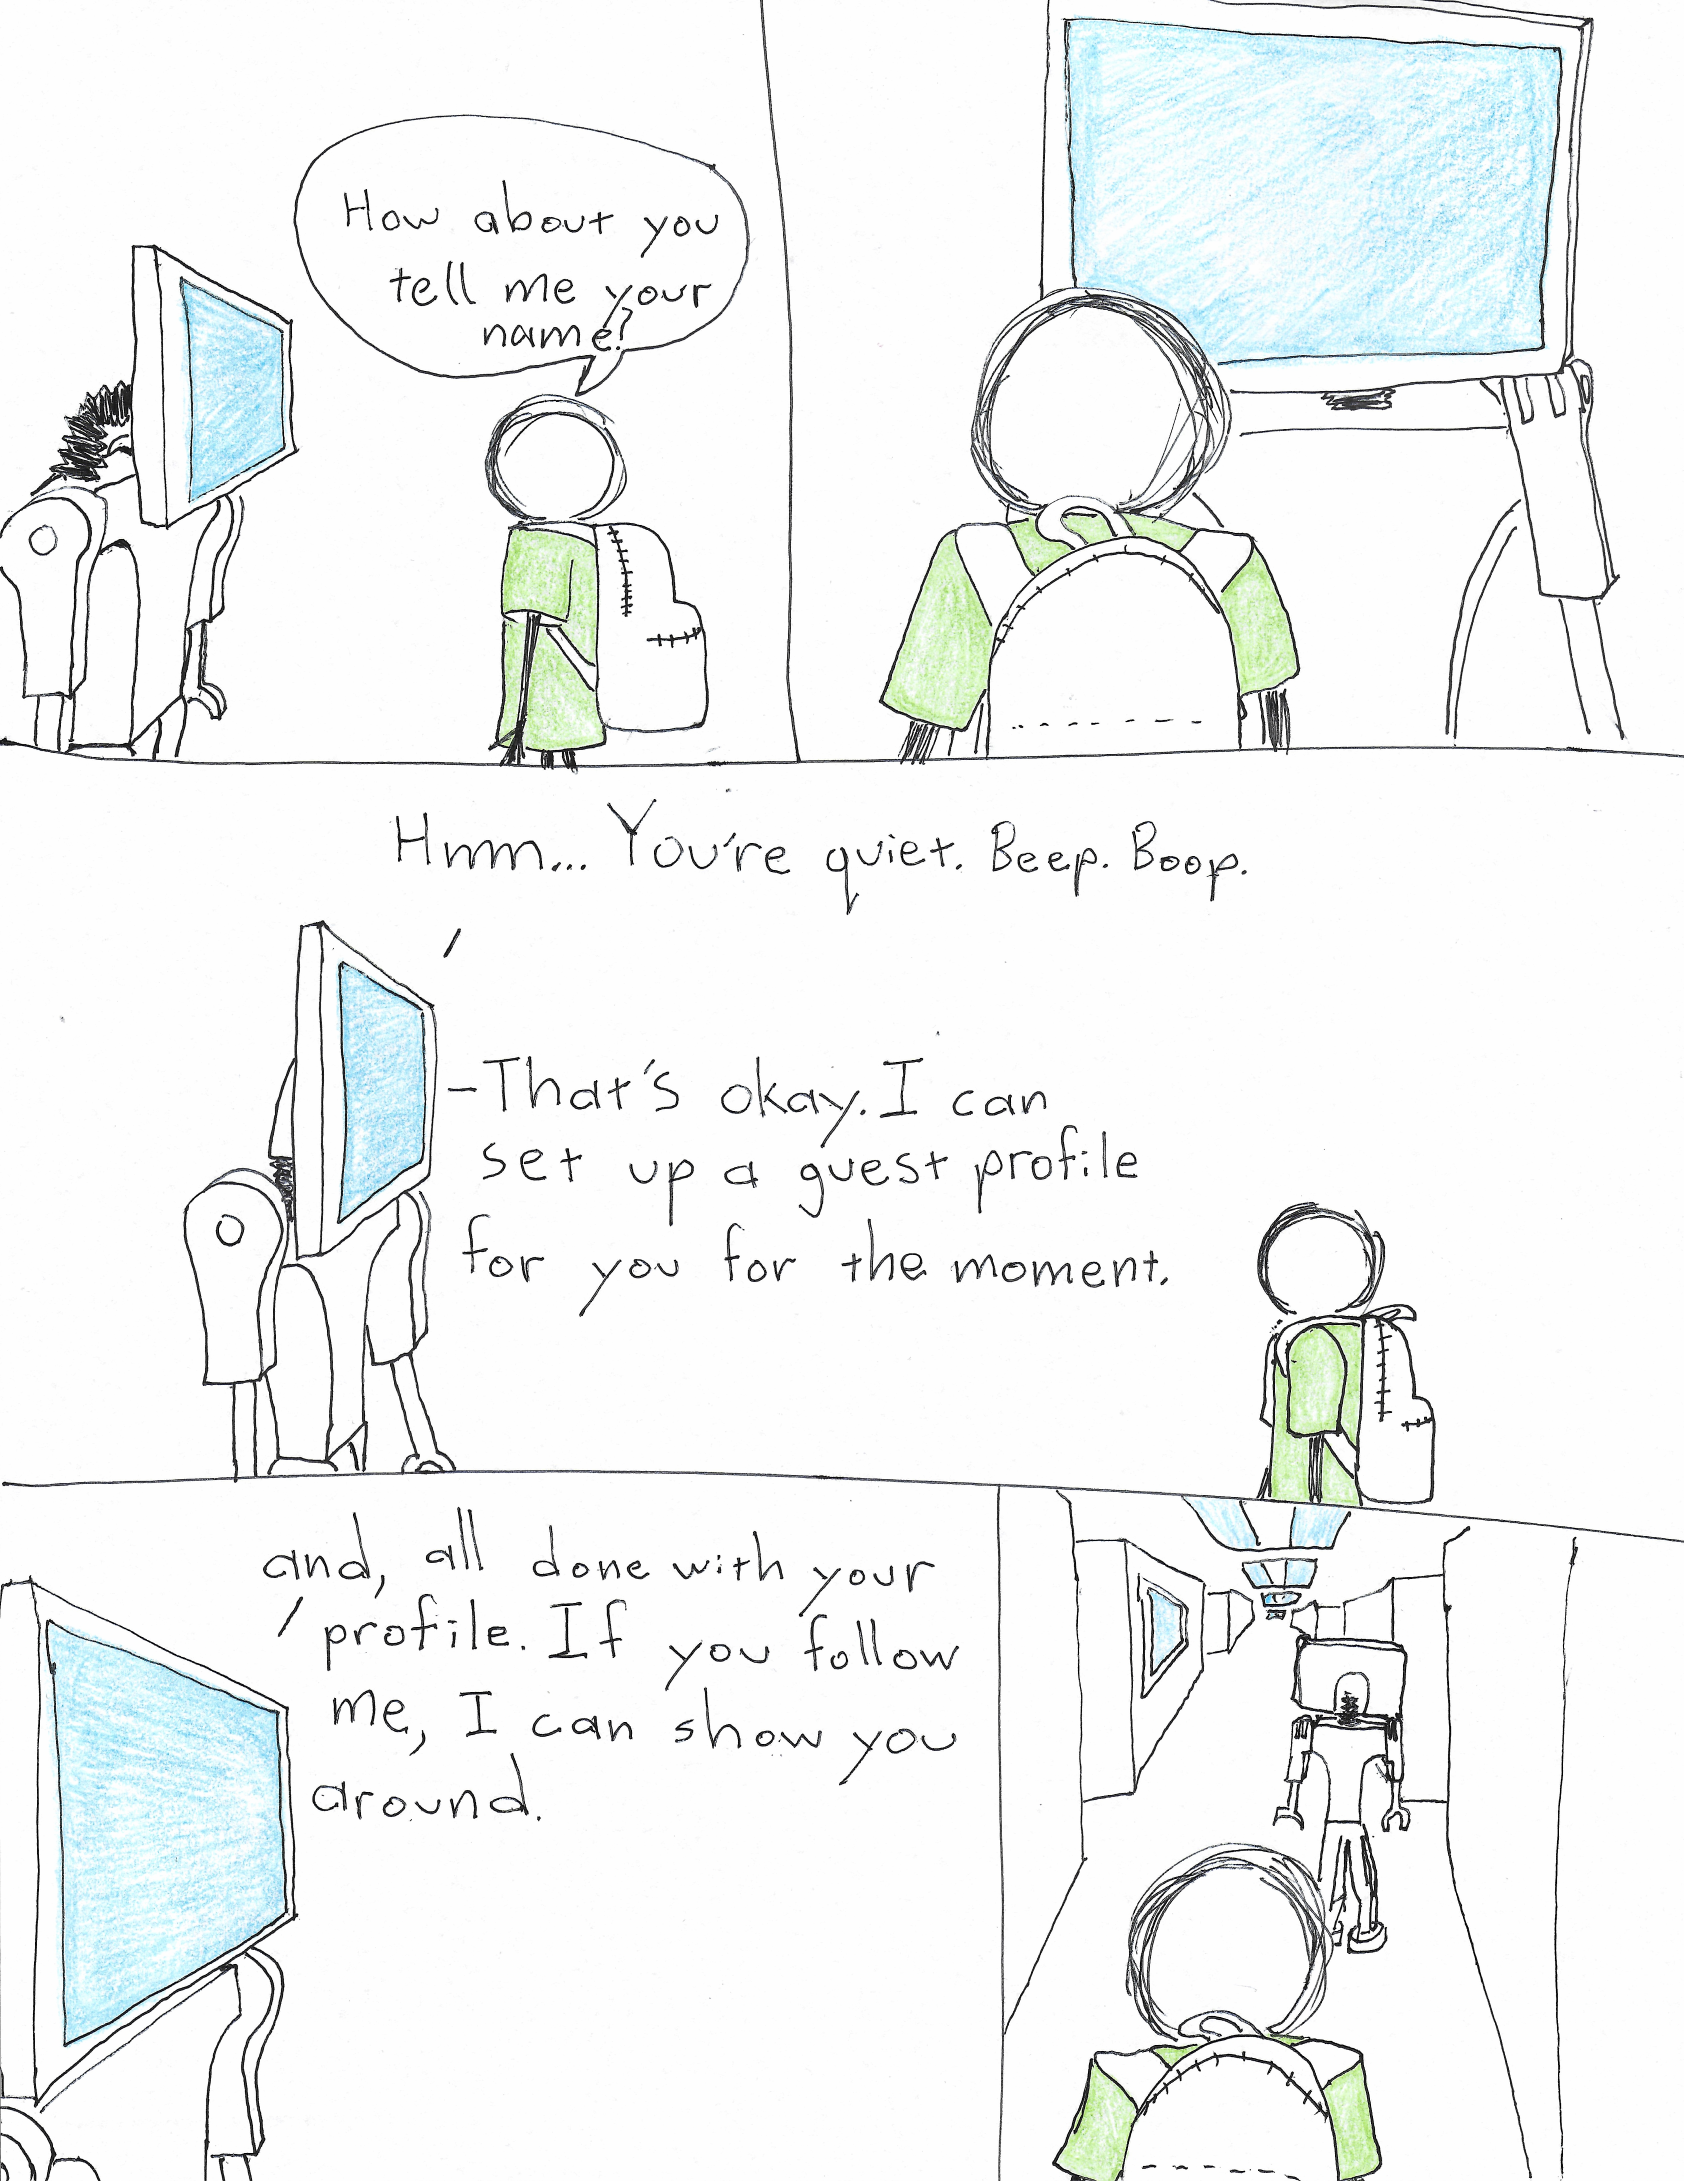 How about you
tell me your
name?
Hmm... You're quiet. Beep. Boop.
-That's okay. I can
set up a guest profile
for you for the moment.
and, all done with your
profile. If you follow
me, I can show you
around.